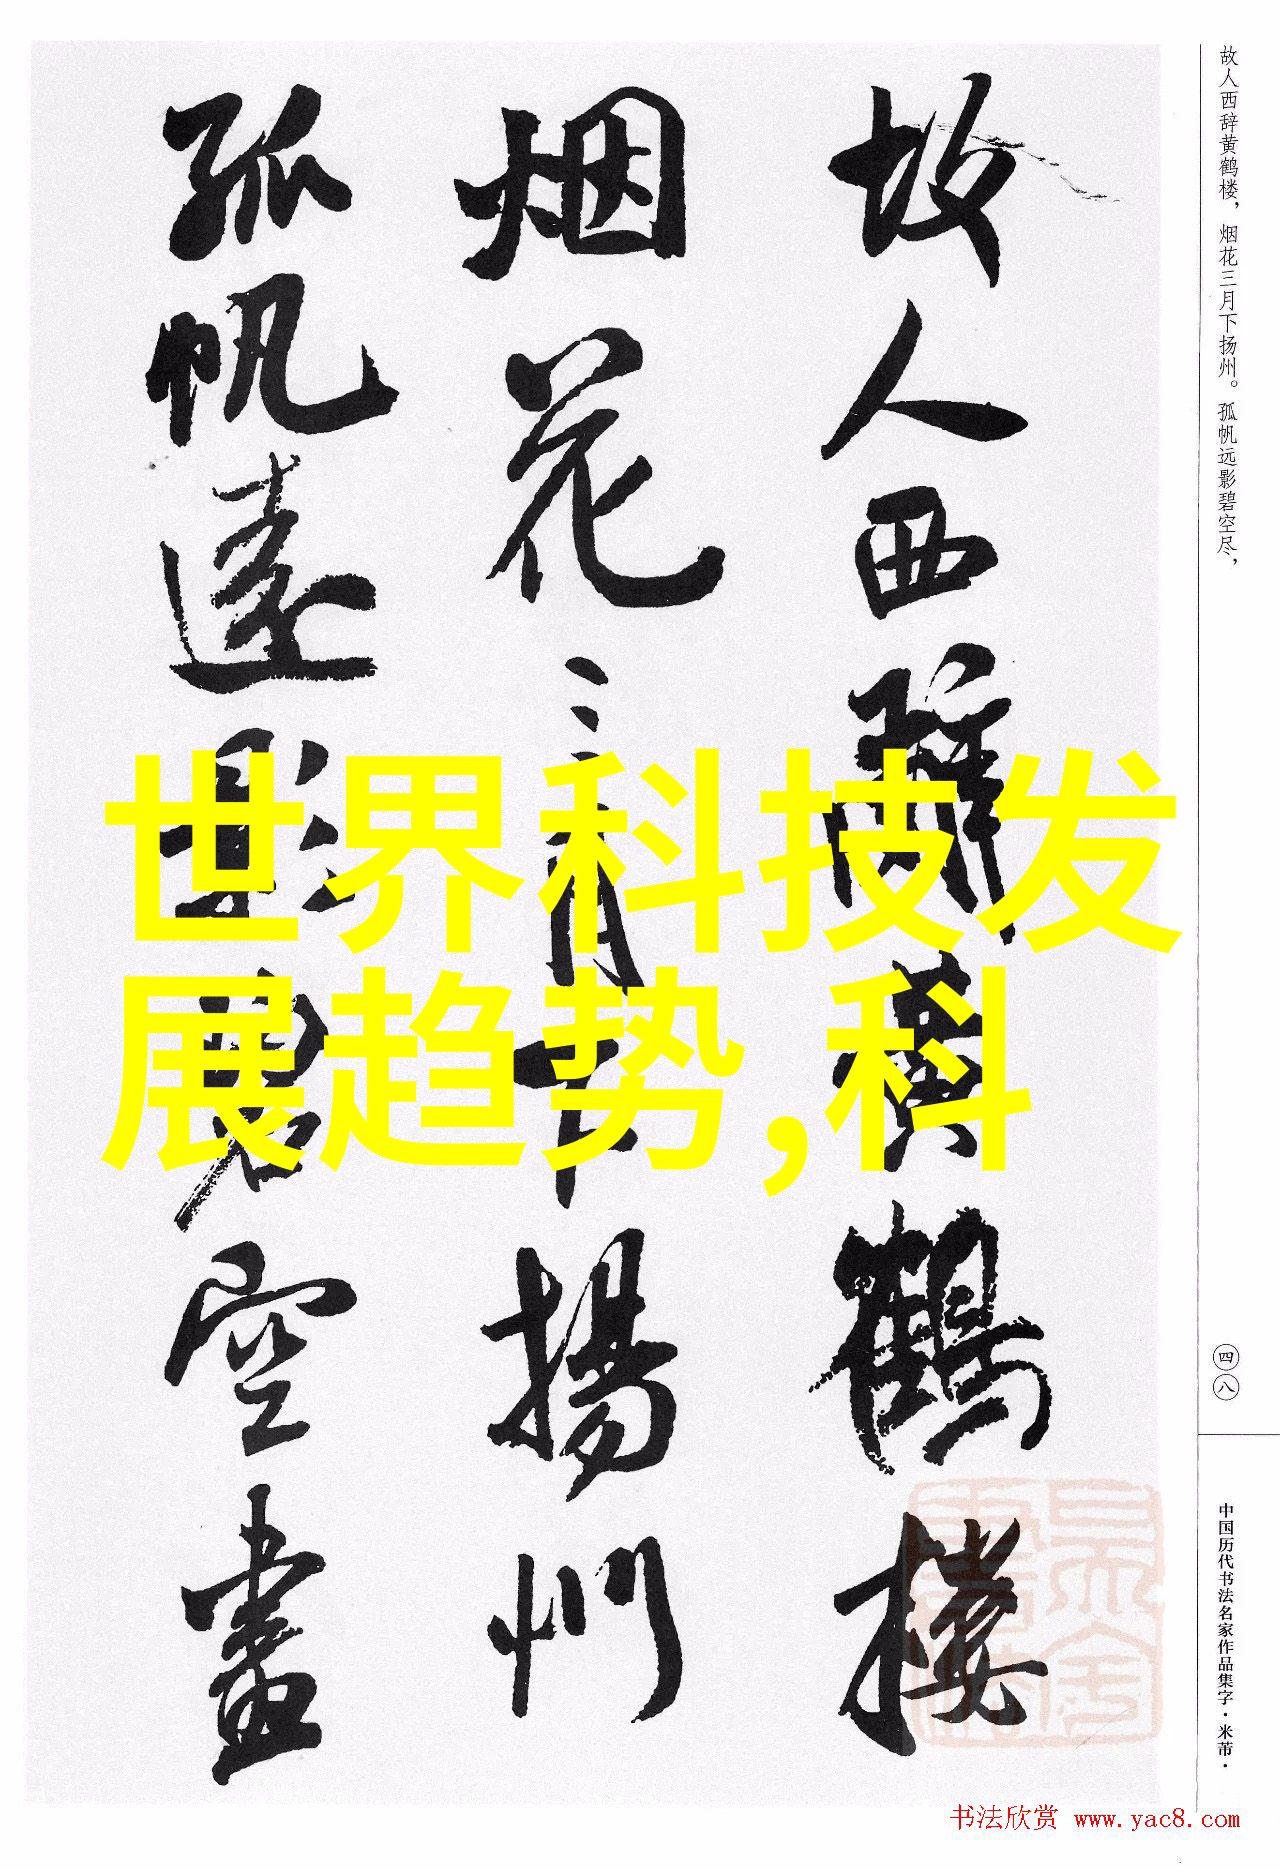 故人西辞黄鹤楼，烟花三月下扬州。孤帆远影碧空尽，
故人西辭黄鹤楼
烟花三月下揚州
孤帆遠影碧空盡
世界科技发
展趋势,科
四八
中国历代书法名家作品集字·米芾·
书法欣赏 www.yac8.com